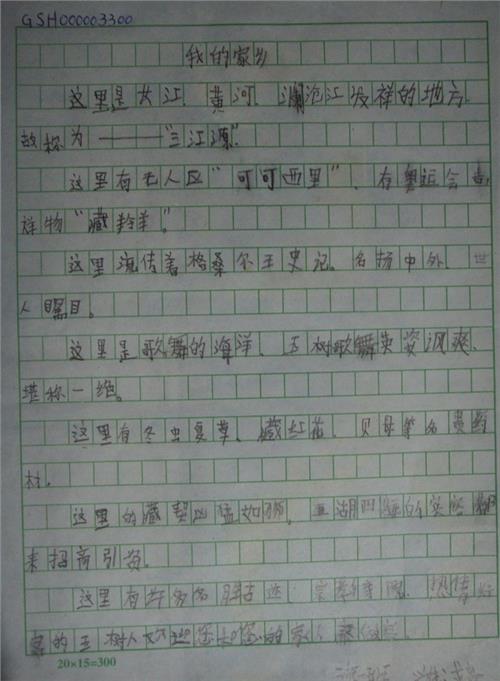 GSH000003300
我的家乡
这里是大江、黄河、澜沧江发祥的地方、
故称为———"三江源".
这里有无人区"可可西里"、有奥运会吉
祥物"藏羚羊"。
这里流传着格桑尔王史记。名扬中外、世
人瞩目。
这里是歌舞的海洋、玉树歌舞英姿飒爽、
堪称一绝。
这里有冬虫夏草、藏红花、贝母等名贵药
材.
这里的藏獒凶猛如狮。
来招商引资。
这里有许多名胜古迹 热情好
客的玉树人欢迎您
20×15=300